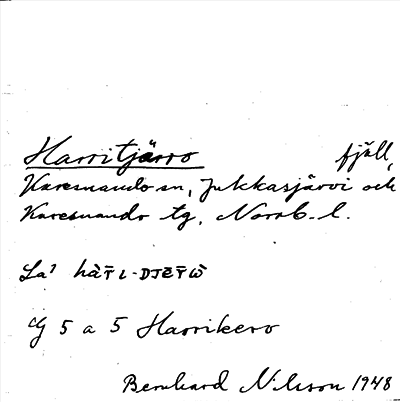 Harritjårro fjäll,
Karesuando sn, Jukkasjärvi och
Karesuando tg, Norrb. l.
La¹
cg 5 a 5 Harrikero
Bernhard Nilsson 1948